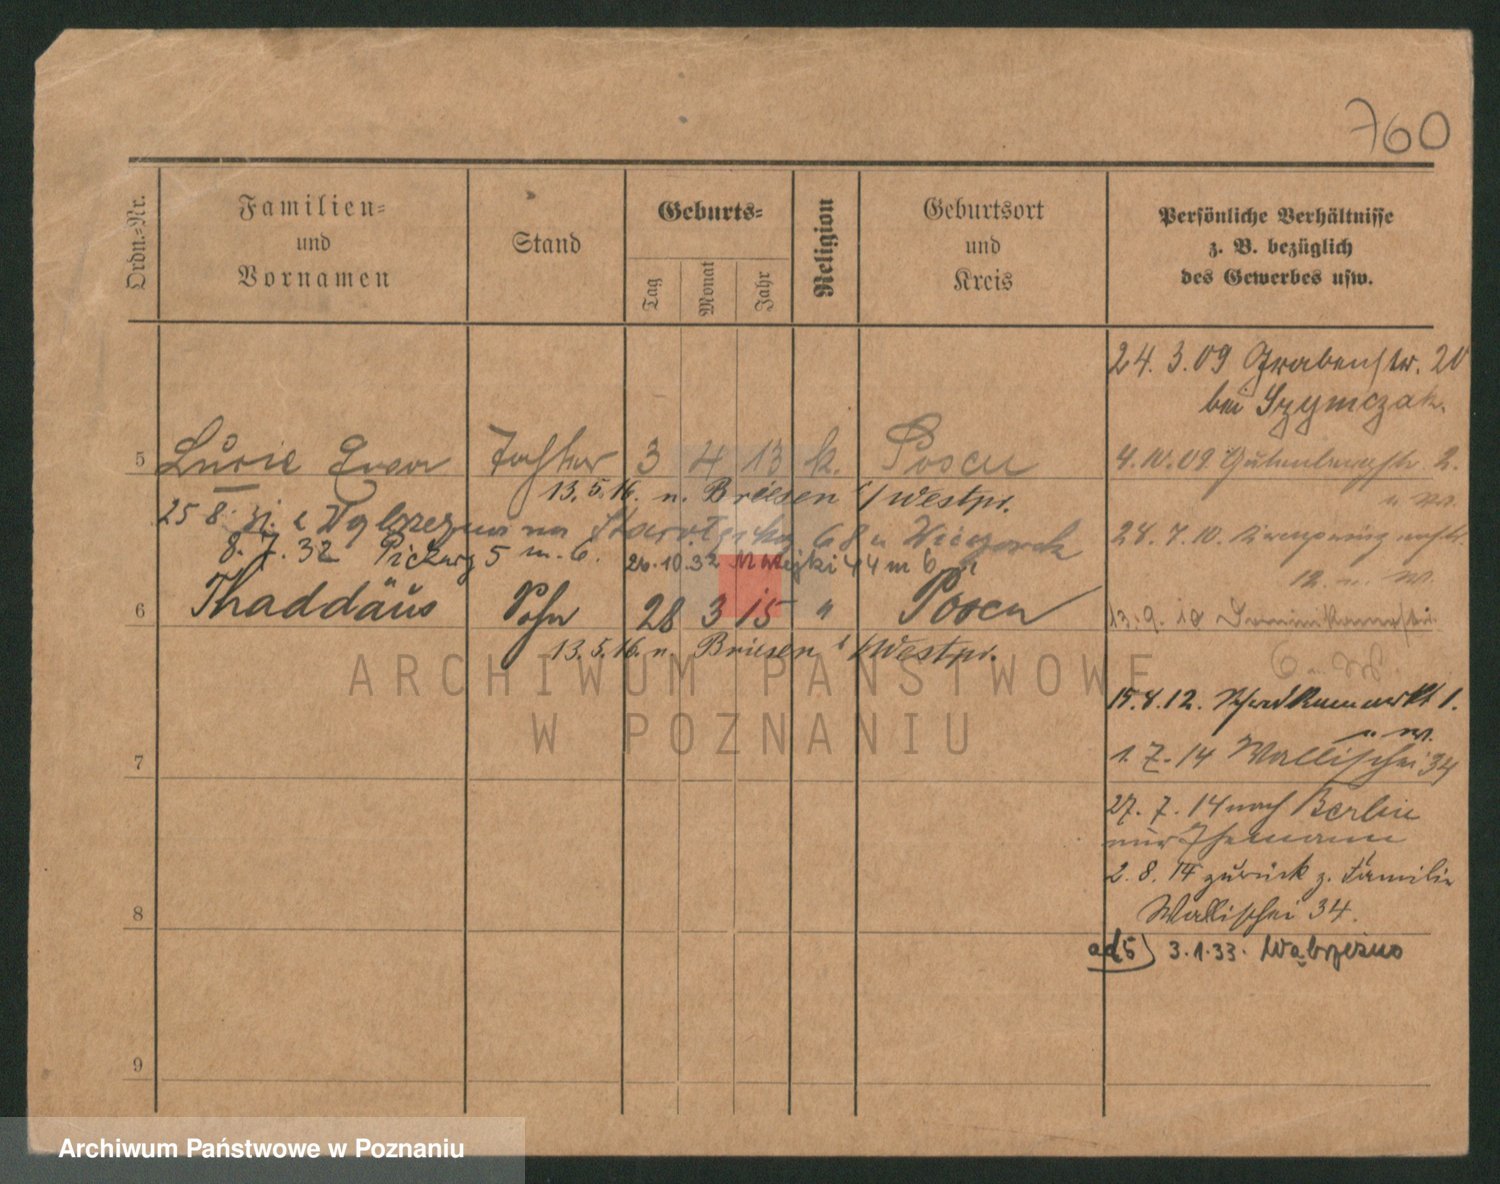 760
Ordn.=Nr.
Familien=
und
Vornamen
Stand
Geburts=
Tag
Monat
Jahr
Religion
Geburtsort
und
Kreis
Persönliche Verhältnisse
z. B. bezüglich
des Gewerbes usw.
24. 3. 09 Grabenstr. 20
bei Szymczak.
5 Lucie Eva Tochter 3 4 13 k. Posen
4. 10. 09 Gutenbergstr. 2.
13. 5. 16. n. Briesen i/Westpr.
25 8 z Wąbrzezna na 68 u
24. 7. 10.
8. 7. 32 5 m. 6. 26. 10. 32 Matejki 44 m 6
12. u. W.
6 Thaddäus Sohn 28 3 15 " Posen
13. 9. 10 Dominikanerstr.
13. 5. 16. n. Briesen i/Westpr.
6 u. W.
15. 4. 12. 1.
u. W.
7
1. 7. 14 Wallischei 34
27. 7. 14 nach Berlin
nur Ehemann
2. 8. 14 zurück z. Familie
8
Wallischei 34.
ad 5) 3. 1. 33. Wąbrzezno
9
ARCHIWUM PAŃSTWOWE
W POZNANIU
Archiwum Państwowe w Poznaniu